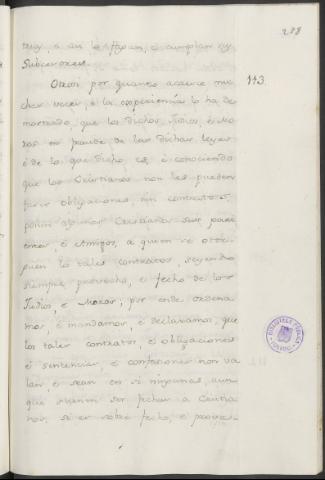 288
rey, o assi lo fagan, e cumplan sus
Subcesores.
Otrosi por quanto acaesce mu-
113.
chas veces, e la experiencia lo ha de-
mostrado, que los dichos Judios, e Mo-
ros en fraude de las dichas leyes
e de lo que dicho es, e conociendo
que los Christianos non les pueden
facer obligaciones, nin contratos,
ponen algunos Christianos sus parie-
entes, e Amigos, a quien se otor-
guen los tales contratos, seyendo
siempre provecho, e fecho de los
Judios, e Moros; por ende ordena-
mos, e mandamos, e declaramos, que
los tales contratos, e obligaciones
e sentencias, e confesiones non va-
lan, e sean en si ningunas, aun-
que suenen ser fechas a Christia-
nos, si es sobre fecho, e provec-
BIBLIOTECA PUBLICA
TOLEDO